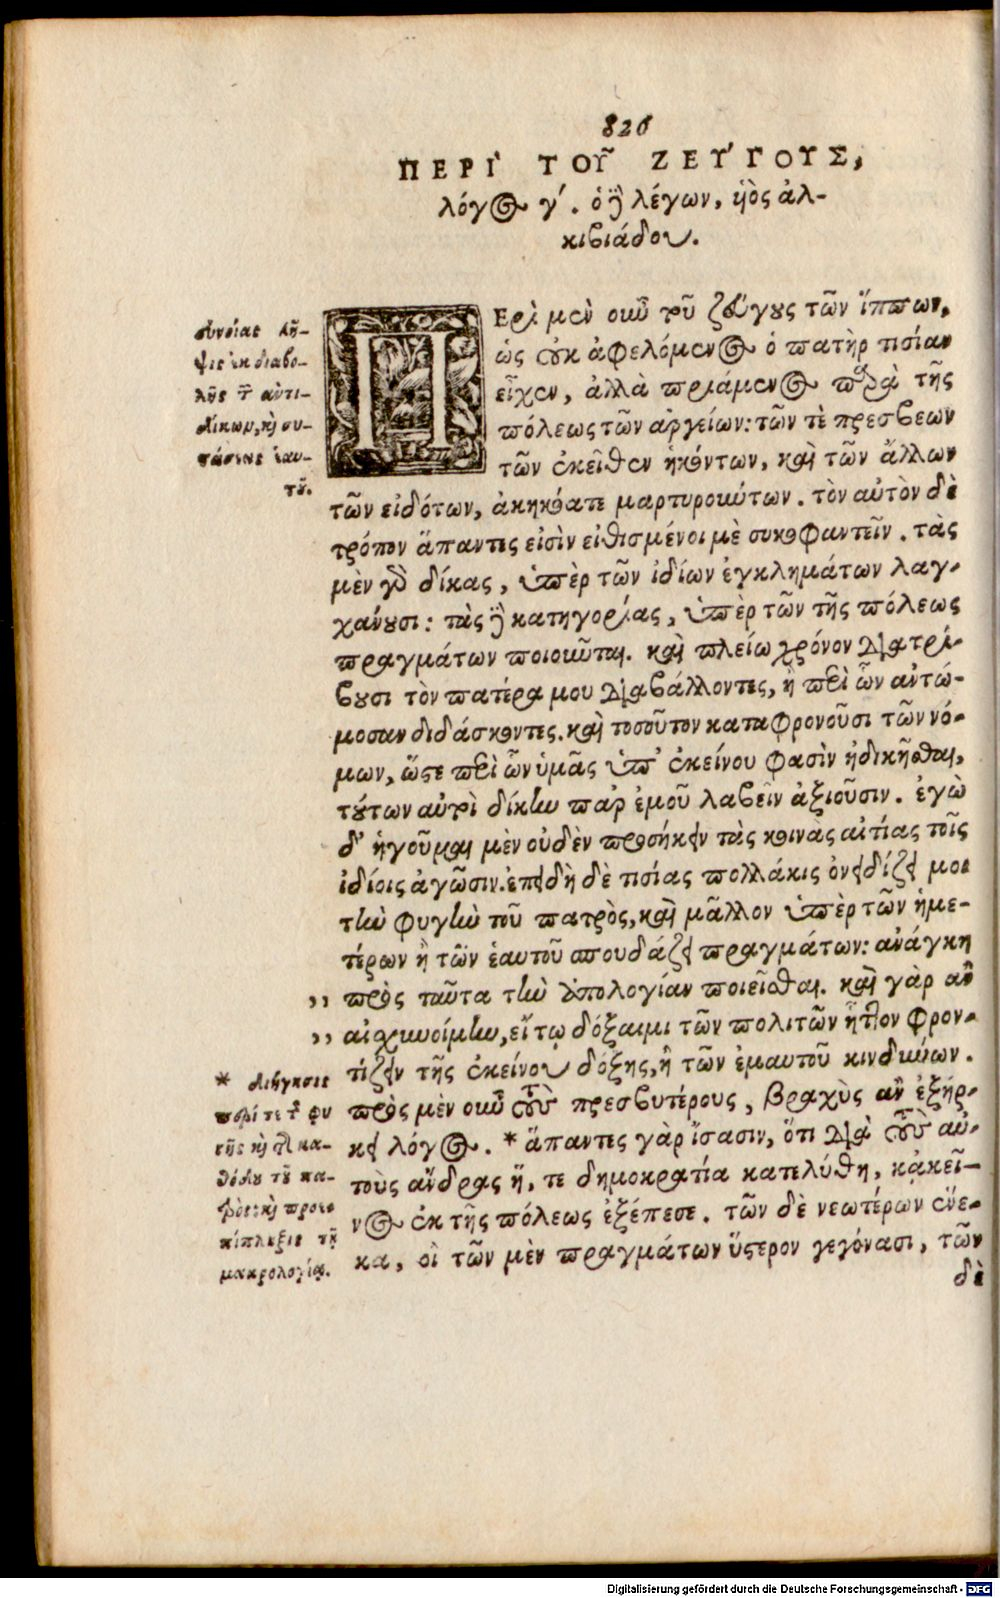 826
ΠΕΡΙ' ΤΟΥ͂ ΖΕΥ'ΓΟΥΣ,
λόγος γ΄. ὁ δὲ λέγων, ὑὸς ἀλ-
κιβιάδου.
ΠΕρὶ μὲν οὖν τοῦ ζεύγους τῶν ἵππων,
ὡς οὐκ ἀφελόμενος ὁ πατὴρ τισίαν
εἶχεν, ἀλλὰ πριάμενος παρὰ τῆς
πόλεως τῶν ἀργείων: τῶν τὲ πρέσβεων
τῶν ἐκεῖθεν ἡκόντων, καὶ τῶν ἄλλων
τῶν εἰδότων, ἀκηκόατε μαρτυρούντων. τὸν αὐτὸν δὲ
τρόπον ἅπαντες εἰσὶν εἰθισμένοι μὲ συκοφαντεῖν. τὰς
μὲν γὰρ δίκας, ὑπὲρ τῶν ἰδίων ἐγκλημάτων λαγ-
χάνουσι: τὰς δὲ κατηγορίας, ὑπὲρ τῶν τῆς πόλεως
πραγμάτων ποιοῦνται. καὶ πλείω χρόνον διατρί-
βουσι τὸν πατέρα μου διαβάλλοντες, ἢ περὶ ὧν ἀντώ-
μοσαν διδάσκοντες. καὶ τοσοῦτον καταφρονοῦσι τῶν νό-
μων, ὥστε περὶ ὧν ὑμᾶς ὑπ' ἐκείνου φασὶν ἠδικῆσθαι,
τούτων αὐτοὶ δίκην παρ' ἐμοῦ λαβεῖν ἀξιοῦσιν. ἐγὼ
δ' ἡγοῦμαι μὲν οὐδὲν προσήκειν τὰς κοινὰς αἰτίας τοῖς
ἰδίοις ἀγῶσιν. ἐπειδὴ δὲ τισίας πολλάκις ὀνειδίζει μοι
τὴν φυγὴν τοῦ πατρὸς, καὶ μᾶλλον ὑπὲρ τῶν ἡμε-
τέρων ἢ τῶν ἑαυτοῦ σπουδάζει πραγμάτων: ἀνάγκη
,, πρὸς ταῦτα τὴν ἀπολογίαν ποιεῖσθαι. καὶ γὰρ ἂν
,, αἰσχυνοίμην, εἴ τῳ δόξαιμι τῶν πολιτῶν ἧττον φρον-
τίζειν τῆς ἐκείνου δόξης, ἢ τῶν ἐμαυτοῦ κινδύνων.
πρὸς μὲν οὖν τοὺς πρεσβυτέρους, βραχὺς ἂν ἐξήρ-
κει λόγος. * ἅπαντες γὰρ ἴσασιν, ὅτι διὰ τοὺς αὐ-
τοὺς ἄνδρας ἥ, τε δημοκρατία κατελύθη, κἀκεῖ-
νος ἐκ τῆς πόλεως ἐξέπεσε. τῶν δὲ νεωτέρων ἕνε-
κα, οἳ τῶν μὲν πραγμάτων ὕστερον γεγόνασι, τῶν
δὲ
εὐνοίας λῆ-
ψις ἐκ διαβο-
λῆς τῶν ἀντι-
δίκων, καὶ συ-
στάσεως ἑαυ-
τοῦ.
* διήγησις
περί τε τῆς φυ
γῆς καὶ τῶν κα-
θόλου τοῦ πα-
τρὸς: καὶ
τῇ
μακρολογίᾳ.
Digitalisierung gefördert durch die Deutsche Forschungsgemeinschaft - DFG